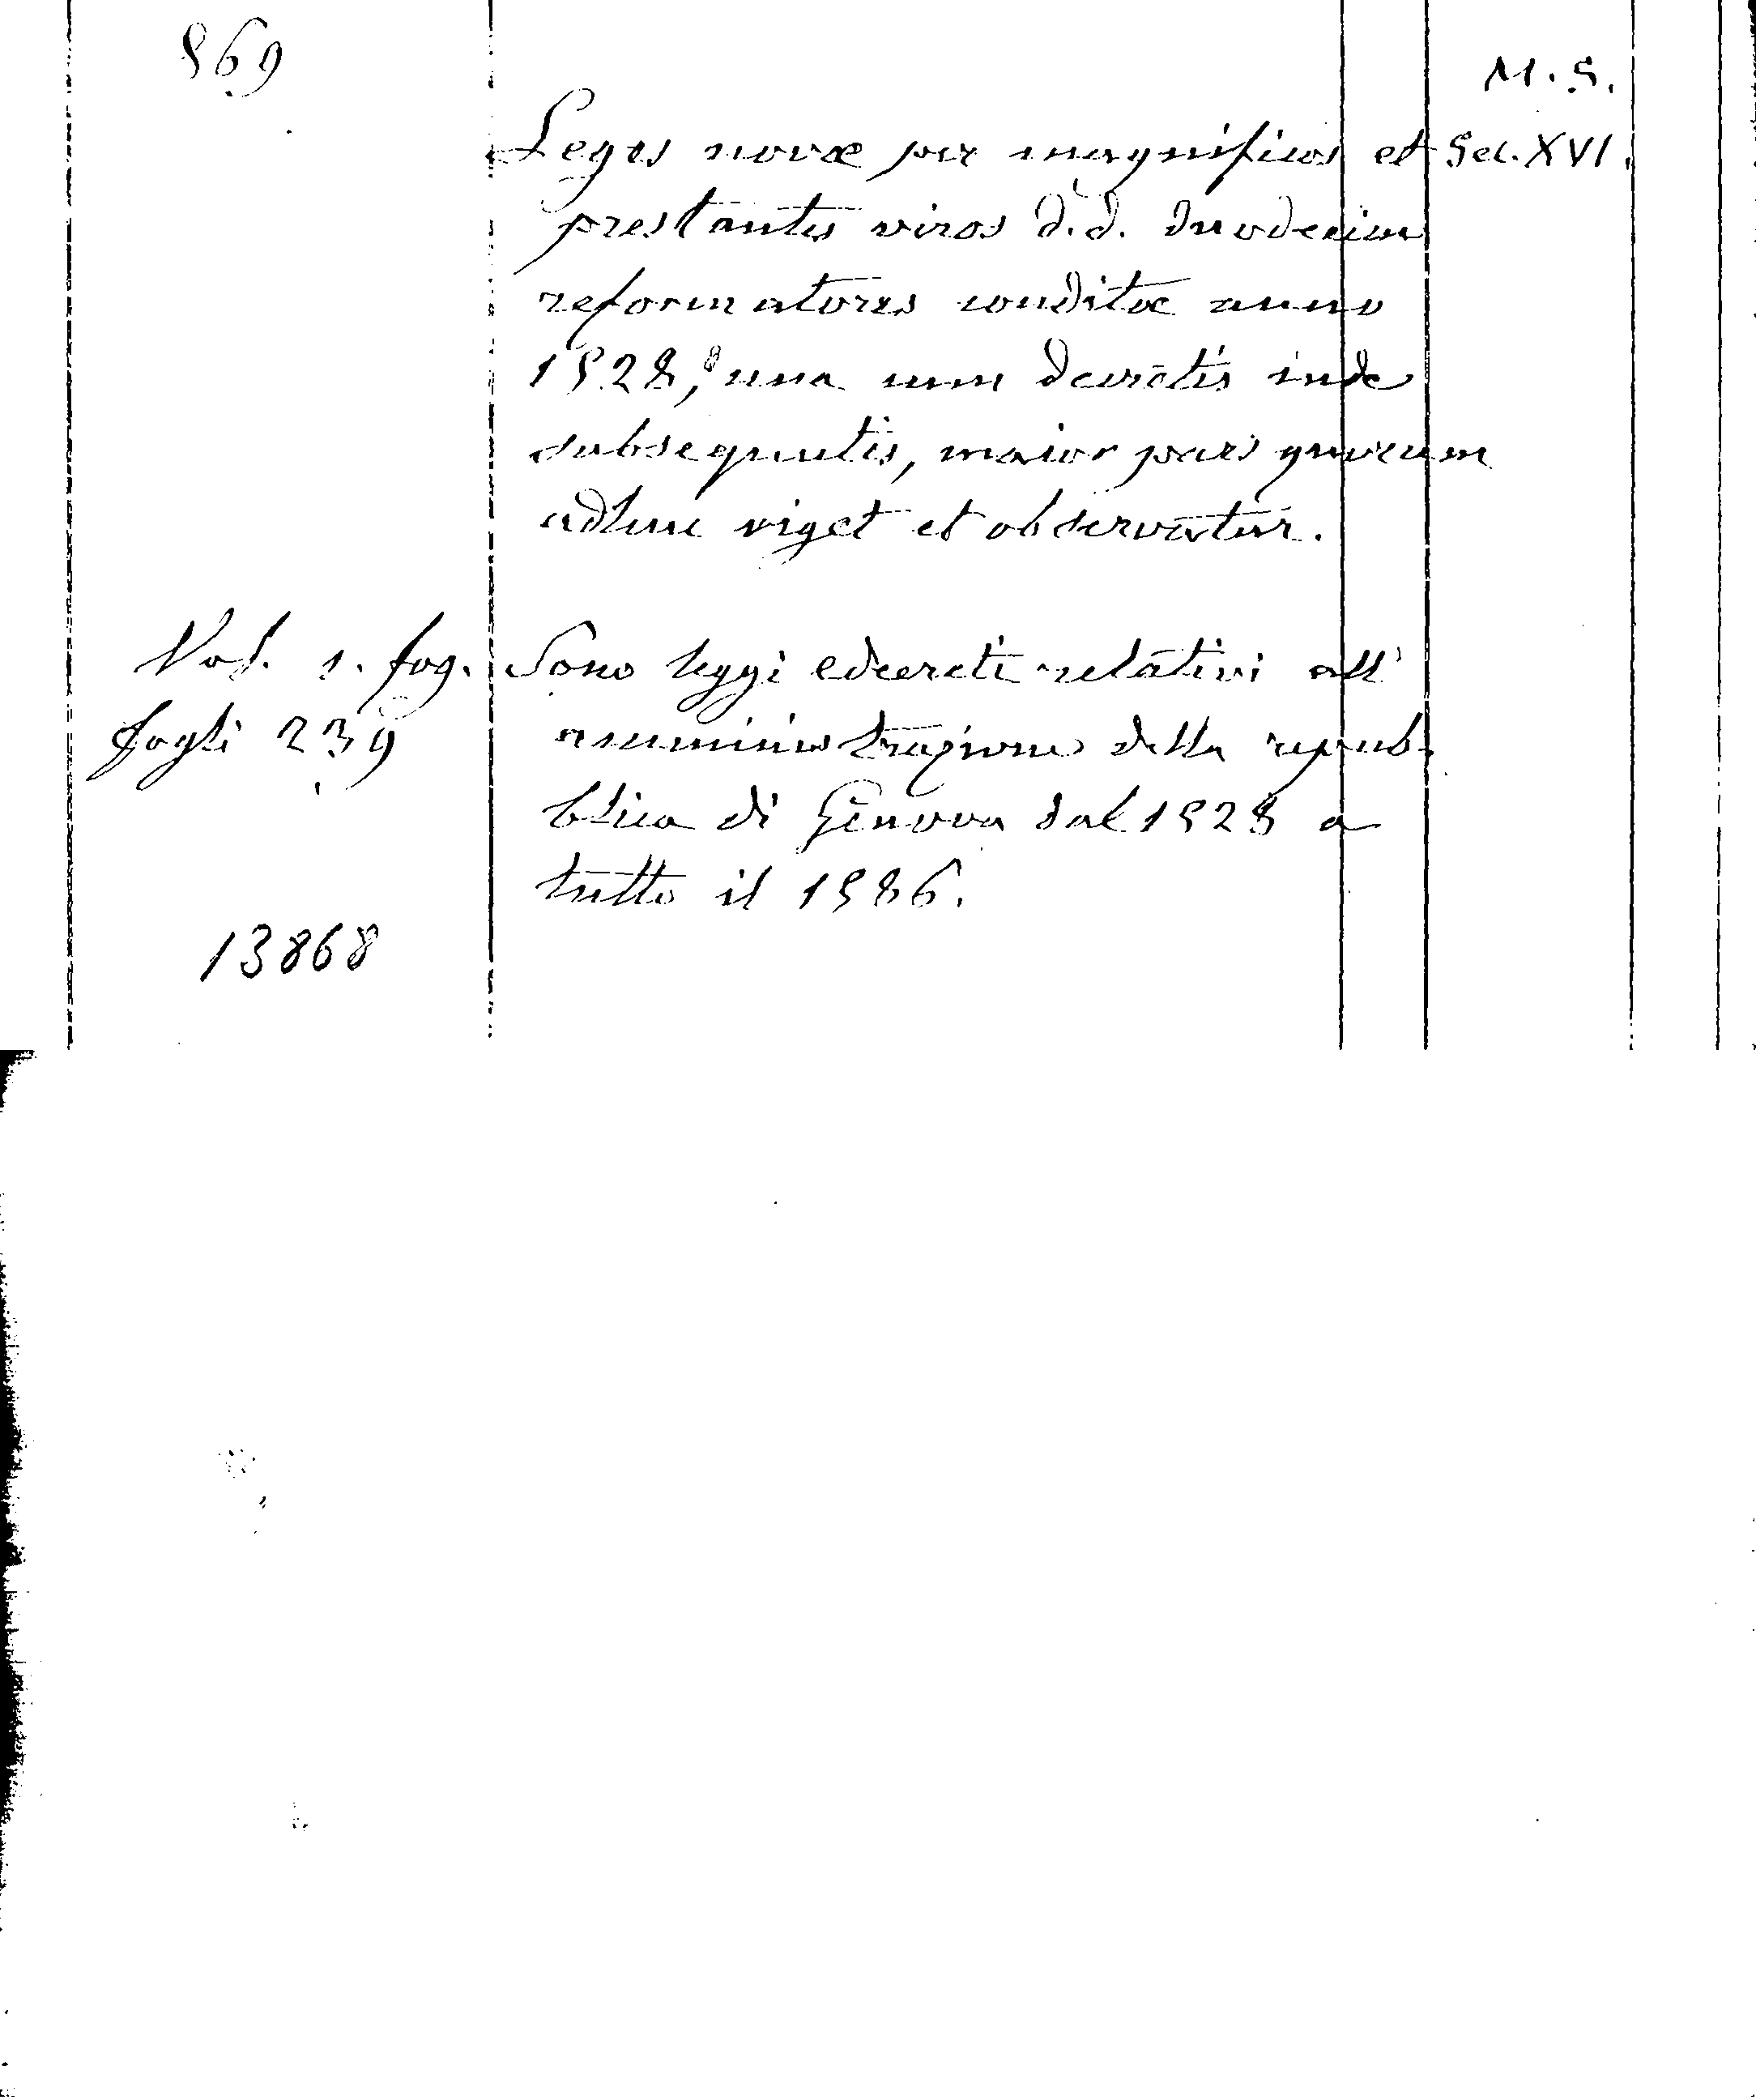 869
M. S.
Leges novæ per magnificos et Sec. XVI.
prestantes viros d.d. duodecim
reformatores conditæ anno
1528, una cum decretis inde
subsequutis, maior pars quorum
adhuc viget et observatur.
Vol. 1. fog. Sono leggi e decreti relativi all'
fogli 239 amministrazione della repub-
blica di Genova dal 1528 a
tutto il 1586.
13868